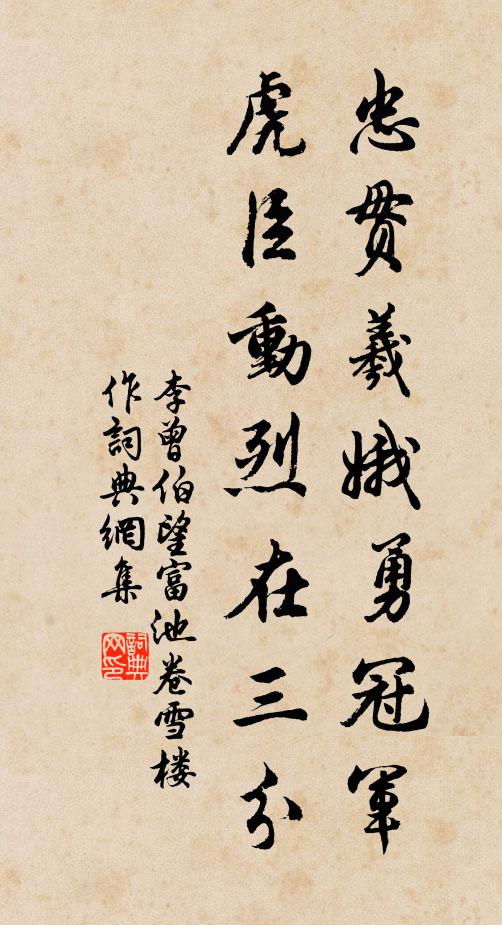 忠贯羲娥勇冠军
虎臣動烈在三分
李曾伯望富池卷雪楼
作詞典網集
詞典网印